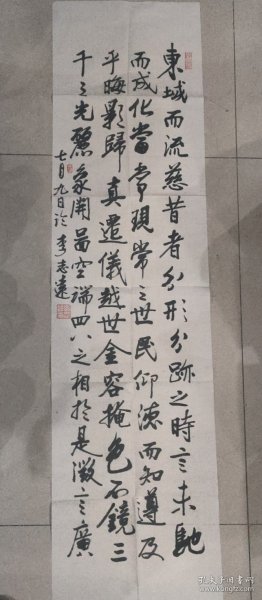 東域而流慈昔者分形分跡之時言未馳
而成化當常現常之世民仰德而知遵及
乎晦影歸真遷儀越世金容掩色不鏡三
千之光麗象開圖空端四八之相於是微言廣
七月九日於李志遠
孔夫子旧书网